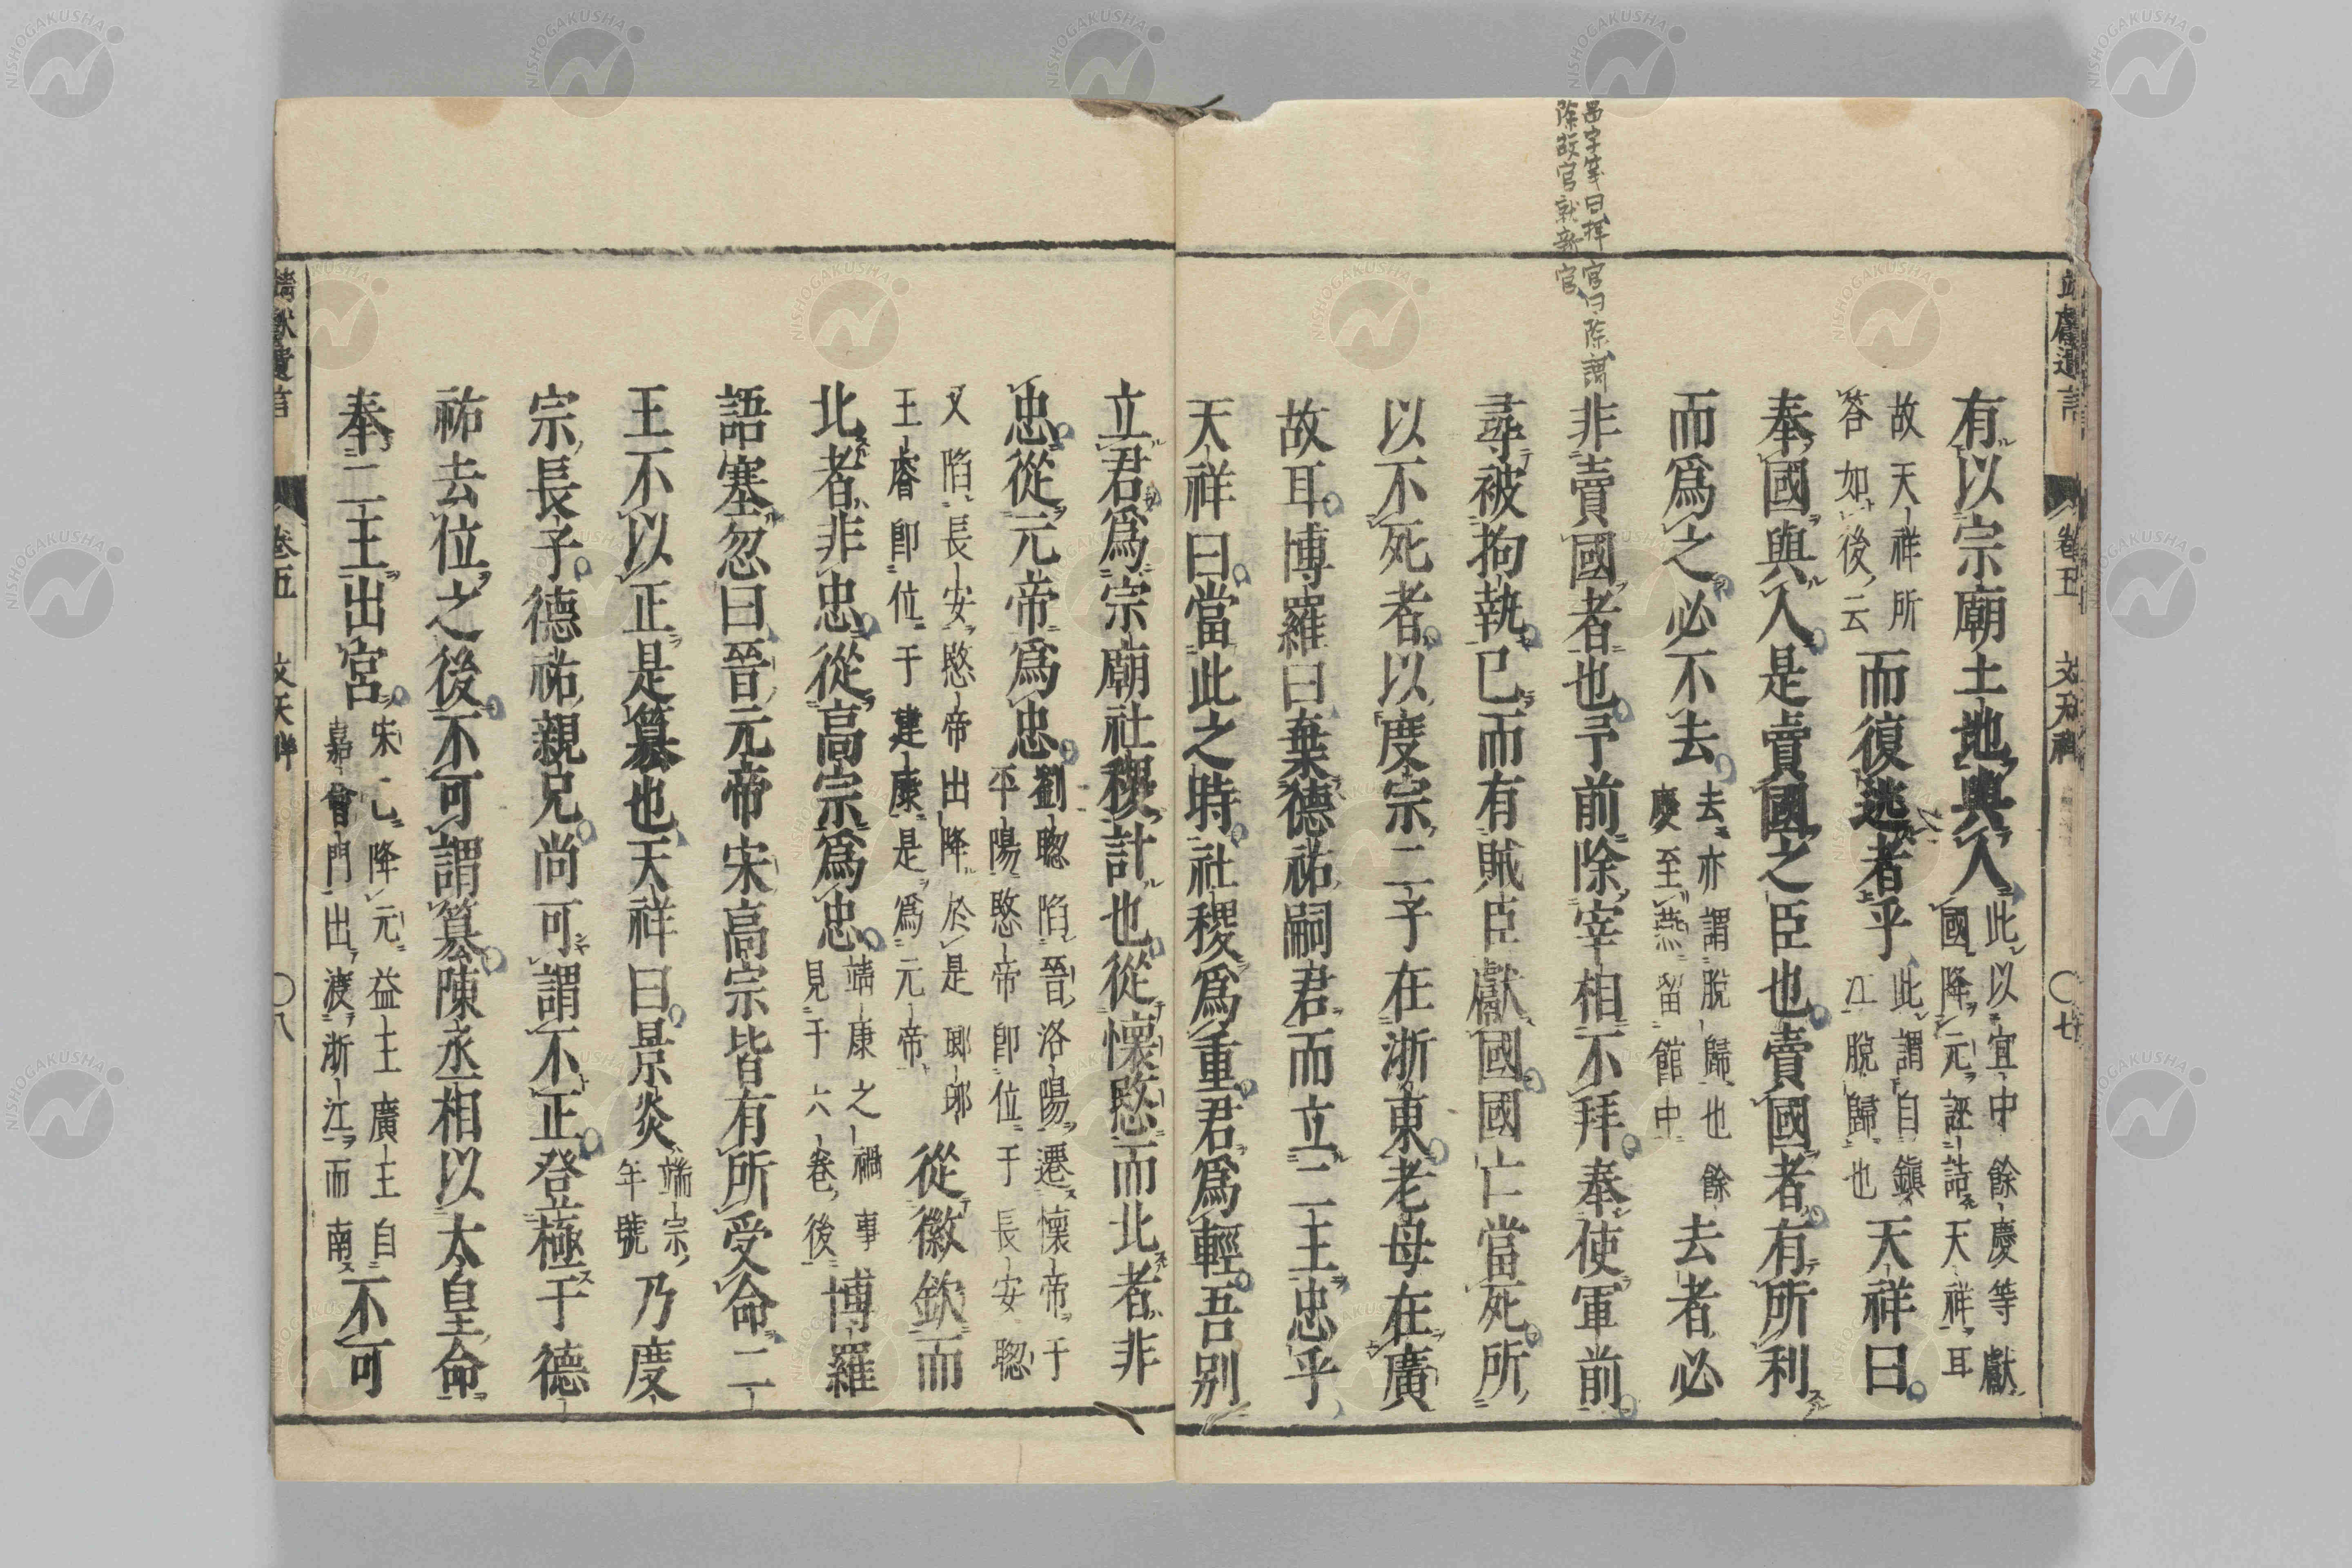 有以宗廟土地與人此以宜中餘慶等獻國降元誣詰天祥耳
故天祥所答如後云而復逃者乎此謂自鎭江脫歸也天祥曰
奉國與人是賣國之臣也賣國者有所利
而爲之必不去去亦謂脫歸也餘慶至燕留館中去者必
非賣國者也予前除宰相不拜奉使軍前
尋被拘執已而有賊臣獻國國亡當死所
以不死者以度宗二子在浙東老母在廣
故耳博羅曰棄德祐嗣君而立二王忠乎
天祥曰當此之時社稷爲重君爲輕吾別
立君爲宗廟社稷計也從懷愍而北者非
忠從元帝爲忠劉聰陷晉洛陽遷懷帝于平陽愍帝卽位于長安聰
又陷長安愍帝出降於是瑯琊王睿卽位于建康是爲元帝從徽欽而
北者非忠從高宗爲忠靖康之禍事見于六卷後博羅
語塞忽曰晉元帝宋高宗皆有所受命二
王不以正是簒也天祥曰景炎端宗年號乃度
宗長子德祐親兄尚可謂不正登極于德
祐去位之後不可謂簒陳丞相以太皇命
奉二王出宮宋已降元益王廣王自嘉會門出渡浙江而南不可
卷五
文天祥
〇七
靖獻遺言
卷五
文天祥
〇八
除故官就新官